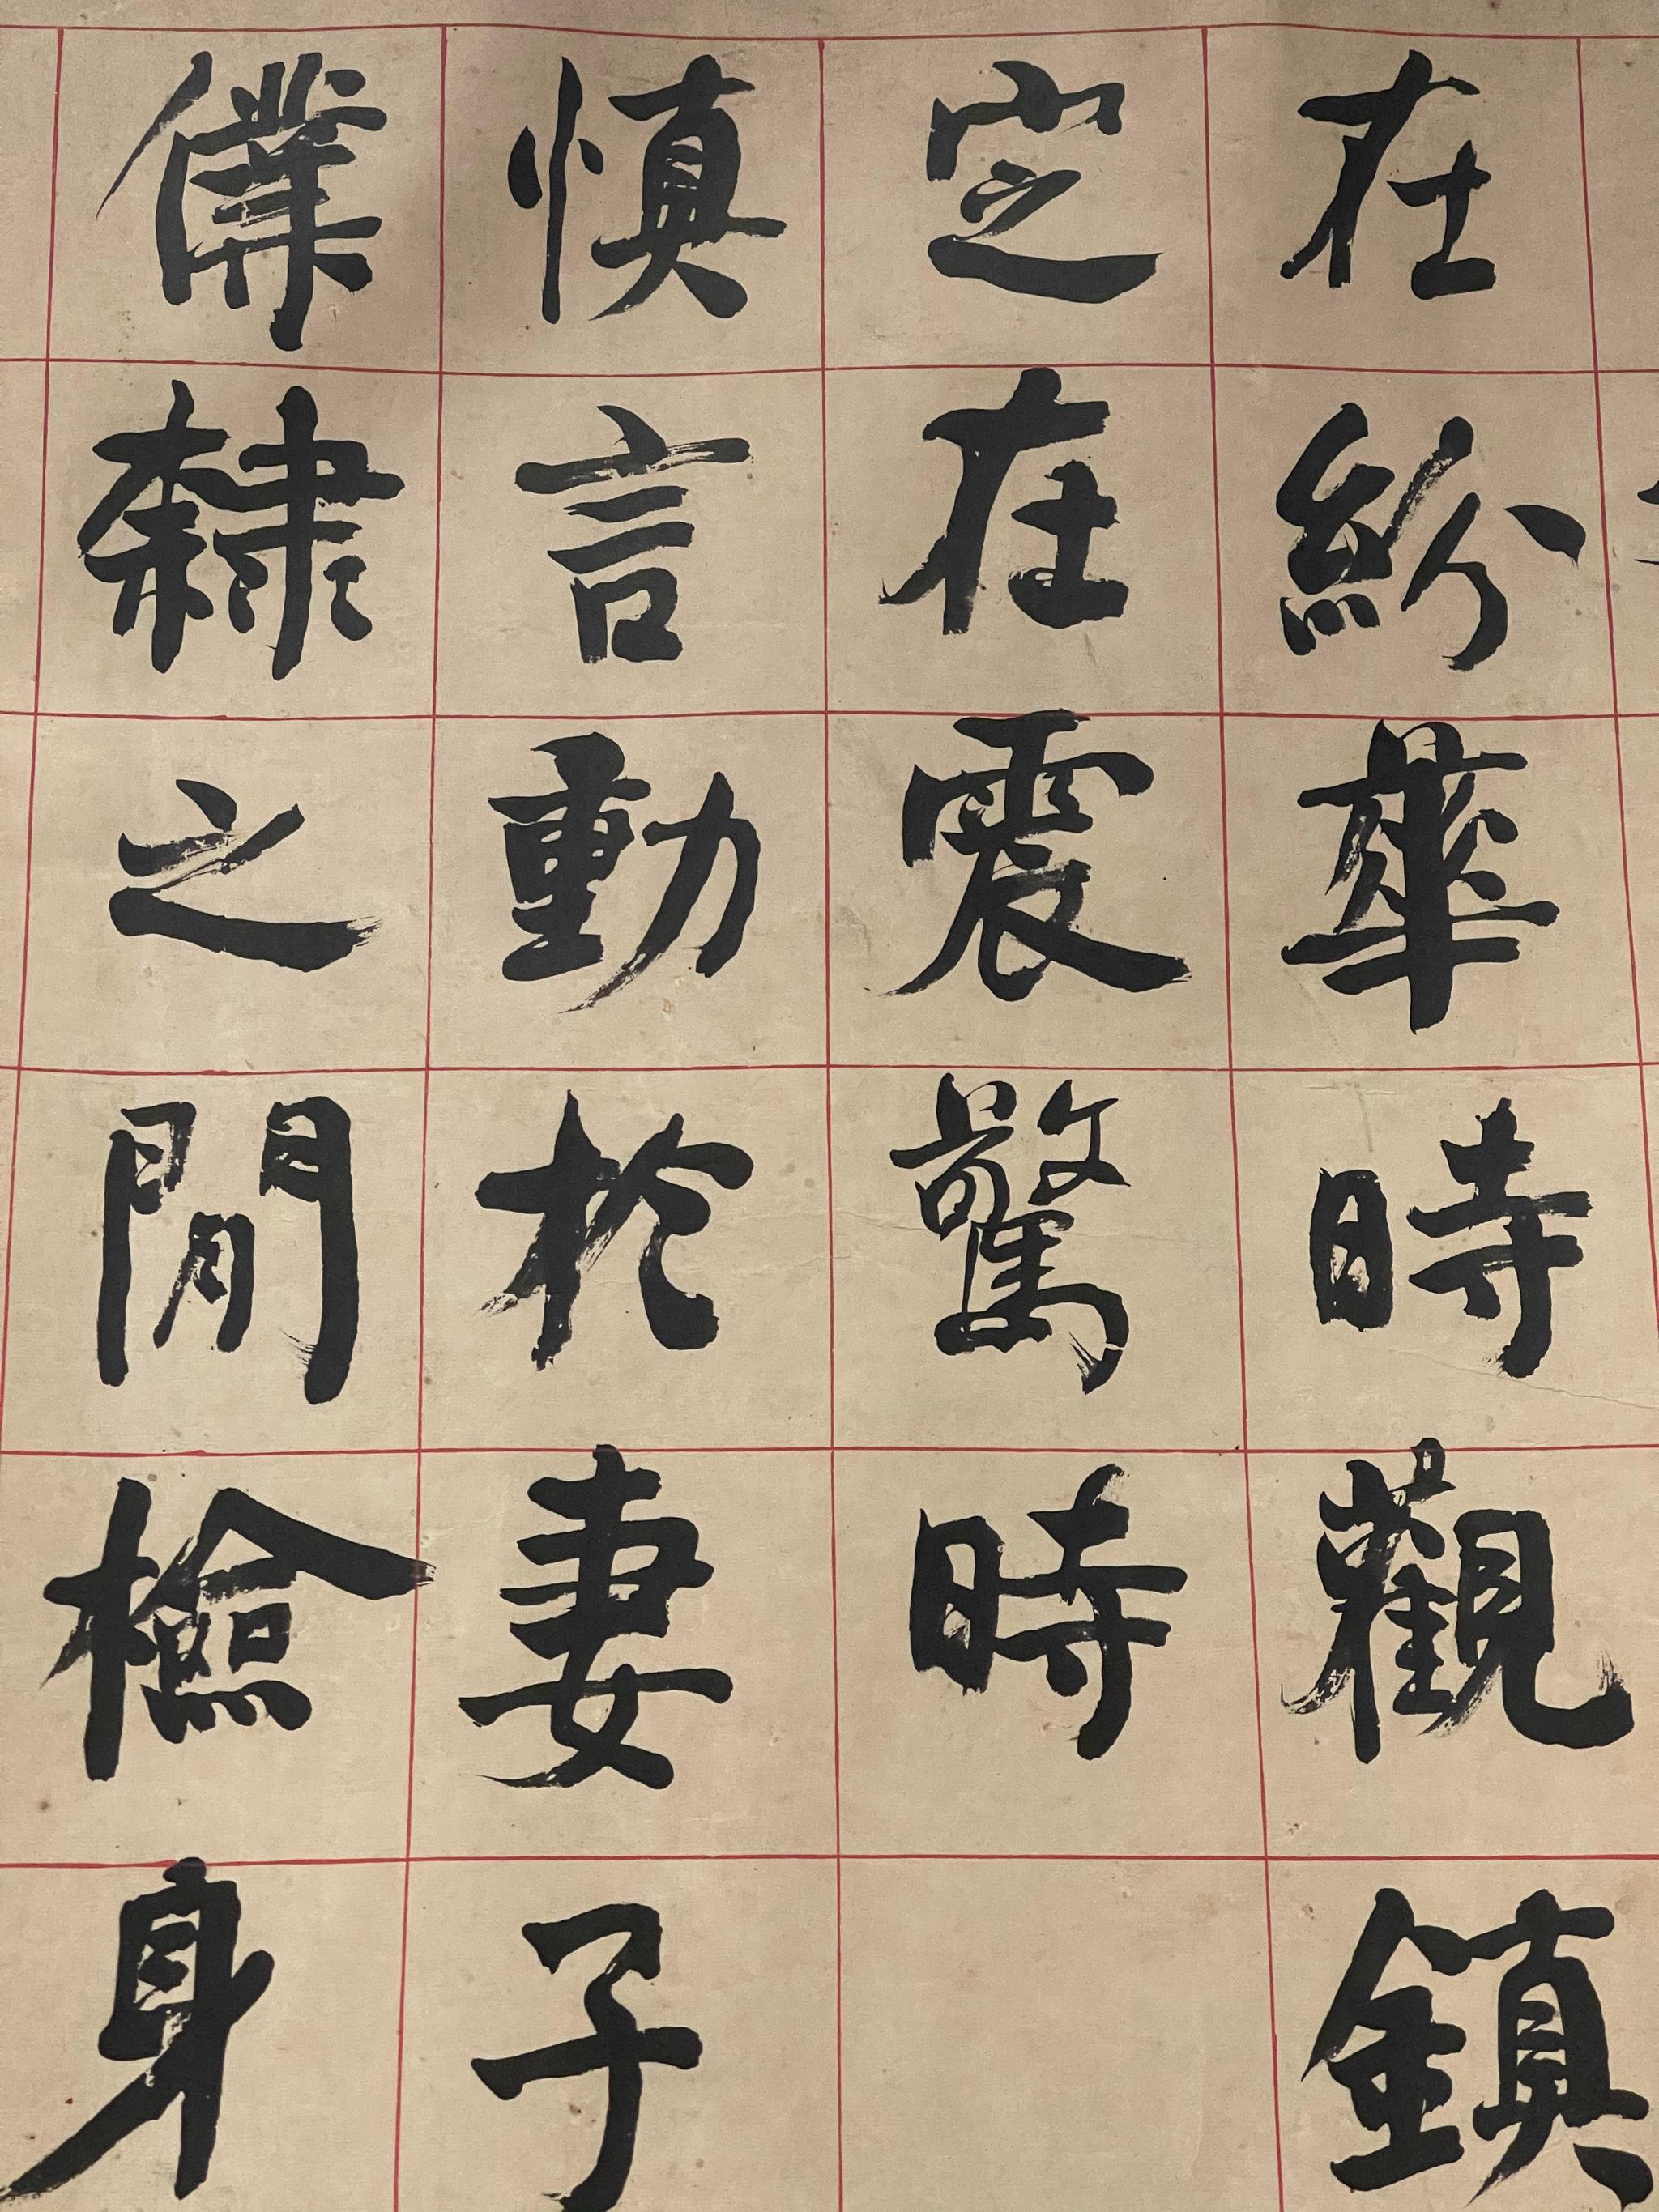 在紛華時觀鎮
定在震驚時
慎言動於妻子
僕隸之閒檢身